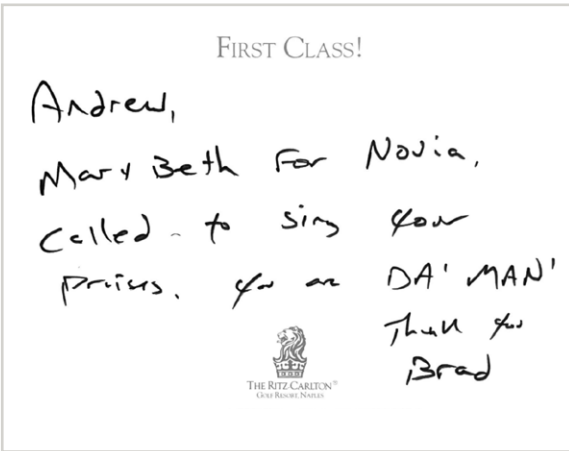 FIRST CLASS!
Andrew,
Mary Beth For Novia,
Called - to sing your
praises. You are DA' MAN'
Thank you
Brad
THE RITZ-CARLTON®
GOLF RESORT, NAPLES